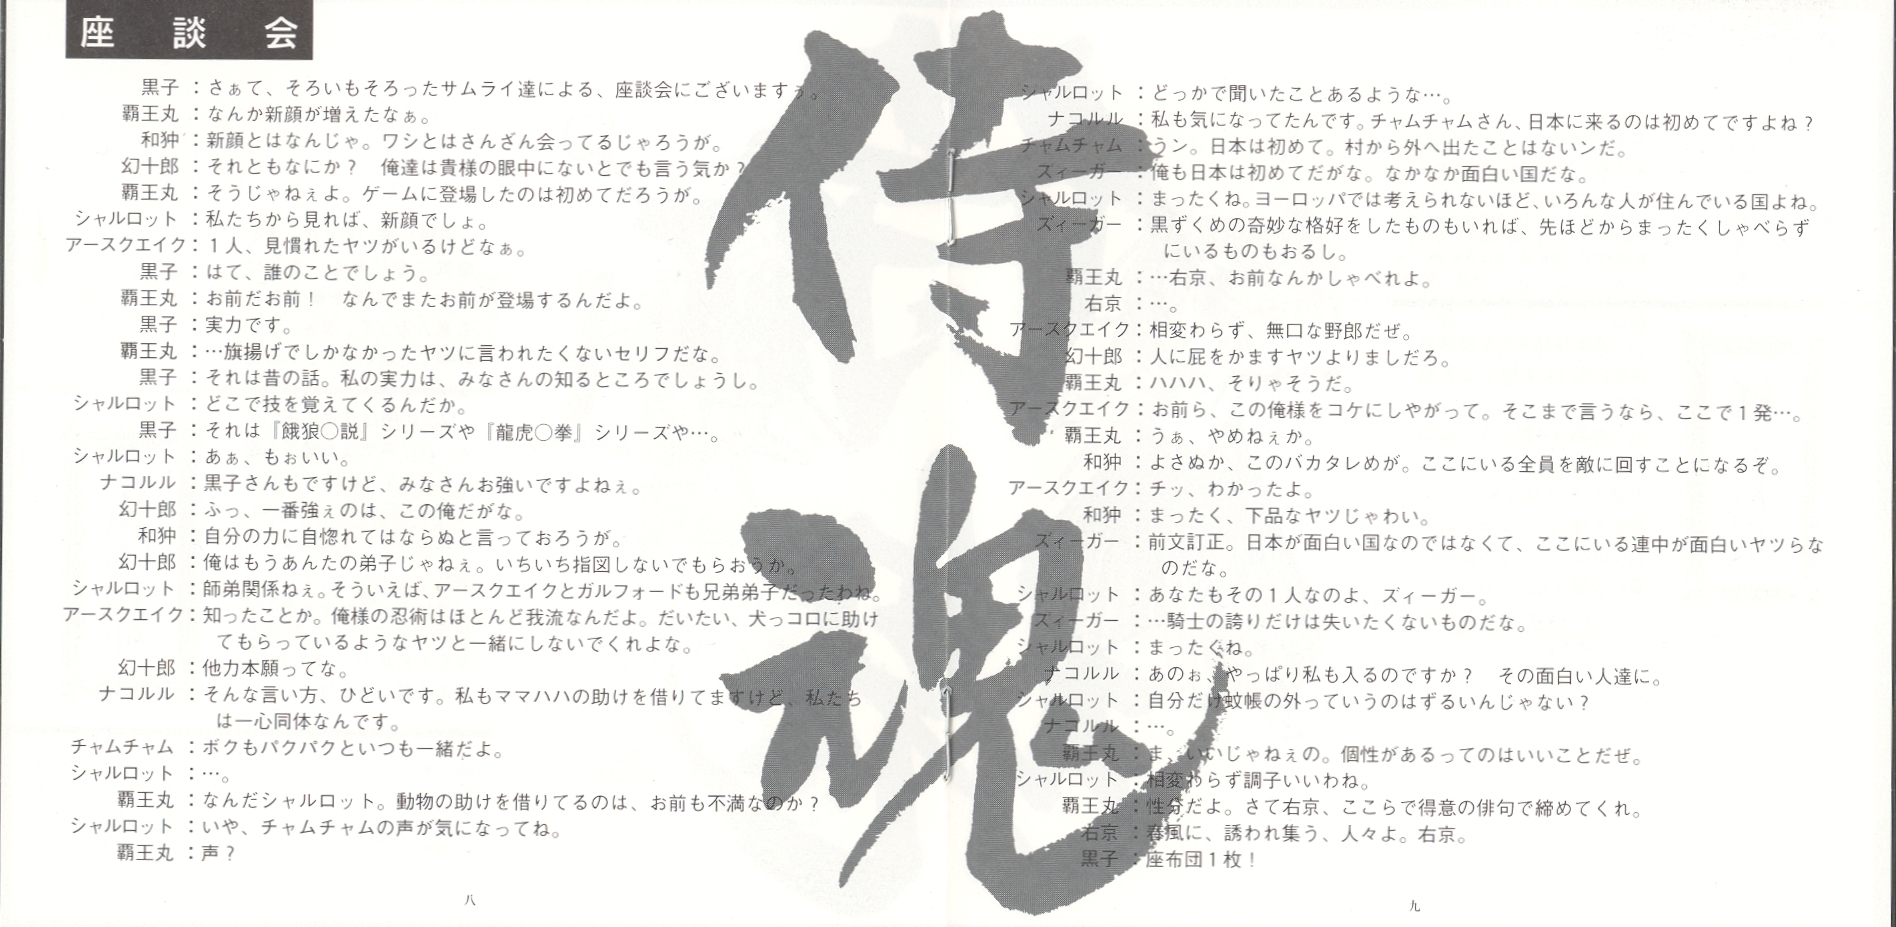 座談会
黒子：さぁて、そろいもそろったサムライ達による、座談会にございますぅ。
覇王丸：なんか新顔が増えたなぁ。
和狆：新顔とはなんじゃ。ワシとはさんざん会ってるじゃろうが。
幻十郎：それともなにか？　俺達は貴様の眼中にないとでも言う気か？
覇王丸：そうじゃねぇよ。ゲームに登場したのは初めてだろうが。
シャルロット：私たちから見れば、新顔でしょ。
アースクエイク：１人、見慣れたヤツがいるけどなぁ。
黒子：はて、誰のことでしょう。
覇王丸：お前だお前！　なんでまたお前が登場するんだよ。
黒子：実力です。
覇王丸：…旗揚げでしかなかったヤツに言われたくないセリフだな。
黒子：それは昔の話。私の実力は、みなさんの知るところでしょうし。
シャルロット：どこで技を覚えてくるんだか。
黒子：それは『餓狼〇説』シリーズや『龍虎〇拳』シリーズや…。
シャルロット：あぁ、もぉいい。
ナコルル：黒子さんもですけど、みなさんお強いですよねぇ。
幻十郎：ふっ、一番強ぇのは、この俺だがな。
和狆：自分の力に自惚れてはならぬと言っておろうが。
幻十郎：俺はもうあんたの弟子じゃねぇ。いちいち指図しないでもらおうか。
シャルロット：師弟関係ねぇ。そういえば、アースクエイクとガルフォードも兄弟弟子だったわね。
アースクエイク：知ったことか。俺様の忍術はほとんど我流なんだよ。だいたい、犬っコロに助け
てもらっているようなヤツと一緒にしないでくれよな。
幻十郎：他力本願ってな。
ナコルル：そんな言い方、ひどいです。私もママハハの助けを借りてますけど、私たち
は一心同体なんです。
チャムチャム：ボクもパクパクといつも一緒だよ。
シャルロット：…。
覇王丸：なんだシャルロット。動物の助けを借りてるのは、お前も不満なのか？
シャルロット：いや、チャムチャムの声が気になってね。
覇王丸：声？
八
侍魂
シャルロット：どっかで聞いたことあるような…。
ナコルル：私も気になってたんです。チャムチャムさん、日本に来るのは初めてですよね？
チャムチャム：うン。日本は初めて。村から外へ出たことはないンだ。
ズィーガー：俺も日本は初めてだがな。なかなか面白い国だな。
シャルロット：まったくね。ヨーロッパでは考えられないほど、いろんな人が住んでいる国よね。
ズィーガー：黒ずくめの奇妙な格好をしたものもいれば、先ほどからまったくしゃべらず
にいるものもおるし。
覇王丸：…右京、お前なんかしゃべれよ。
右京：…。
アースクエイク：相変わらず、無口な野郎だぜ。
幻十郎：人に屁をかますヤツよりましだろ。
覇王丸：ハハハ、そりゃそうだ。
アースクエイク：お前ら、この俺様をコケにしやがって。そこまで言うなら、ここで１発…。
覇王丸：うぁ、やめねぇか。
和狆：よさぬか、このバカタレめが。ここにいる全員を敵に回すことになるぞ。
アースクエイク：チッ、わかったよ。
和狆：まったく、下品なヤツじゃわい。
ズィーガー：前文訂正。日本が面白い国なのではなくて、ここにいる連中が面白いヤツらな
のだな。
シャルロット：あなたもその１人なのよ、ズィーガー。
ズィーガー：…騎士の誇りだけは失いたくないものだな。
シャルロット：まったくね。
ナコルル：あのぉ、やっぱり私も入るのですか？　その面白い人達に。
シャルロット：自分だけ蚊帳の外っていうのはずるいんじゃない？
ナコルル：…。
覇王丸：ま、いいじゃねぇの。個性があるってのはいいことだぜ。
シャルロット：相変わらず調子いいわね。
覇王丸：性分だよ。さて右京、ここらで得意の俳句で締めてくれ。
右京：春風に、誘われ集う、人々よ。右京。
黒子：座布団１枚！
九